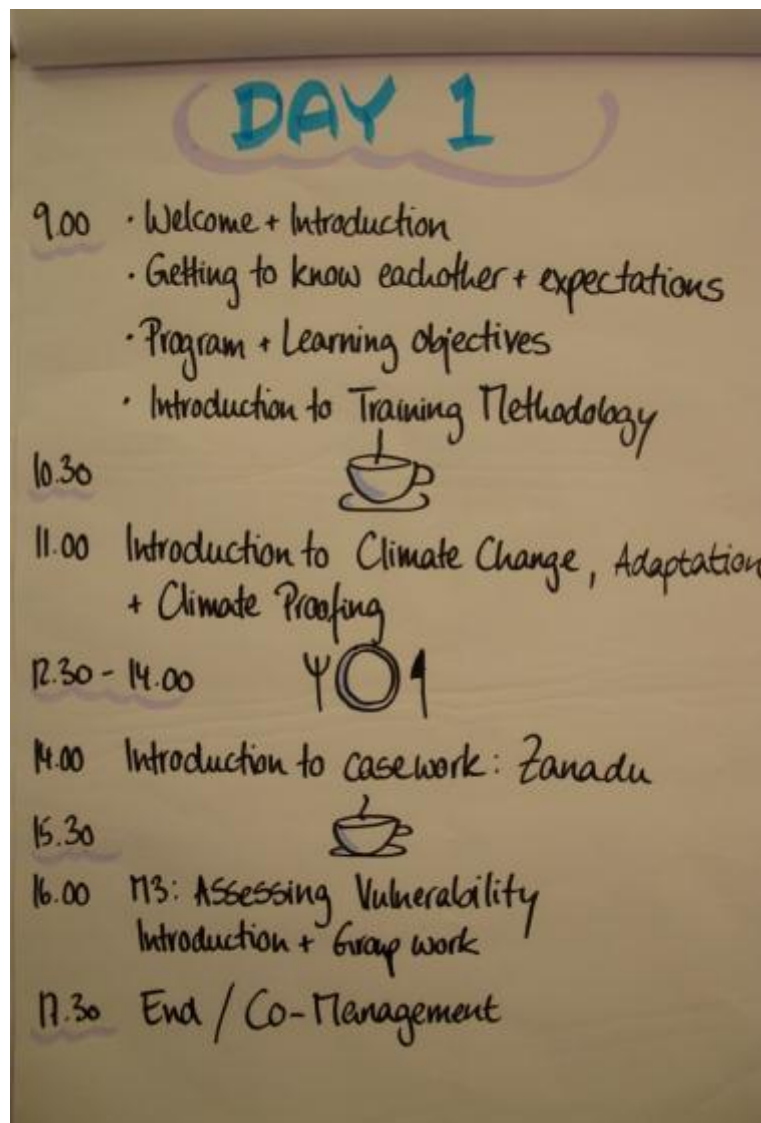 DAY 1
9.00 · Welcome + Introduction
· Getting to know eachother + expectations
· Program + Learning objectives
· Introduction to Training Methodology
10.30
11.00 Introduction to Climate Change, Adaptation
+ Climate Proofing
12.30 - 14.00
14.00 Introduction to casework: Zanadu
15.30
16.00 M3: Assessing Vulnerability
Introduction + Group work
17.30 End / Co-Management